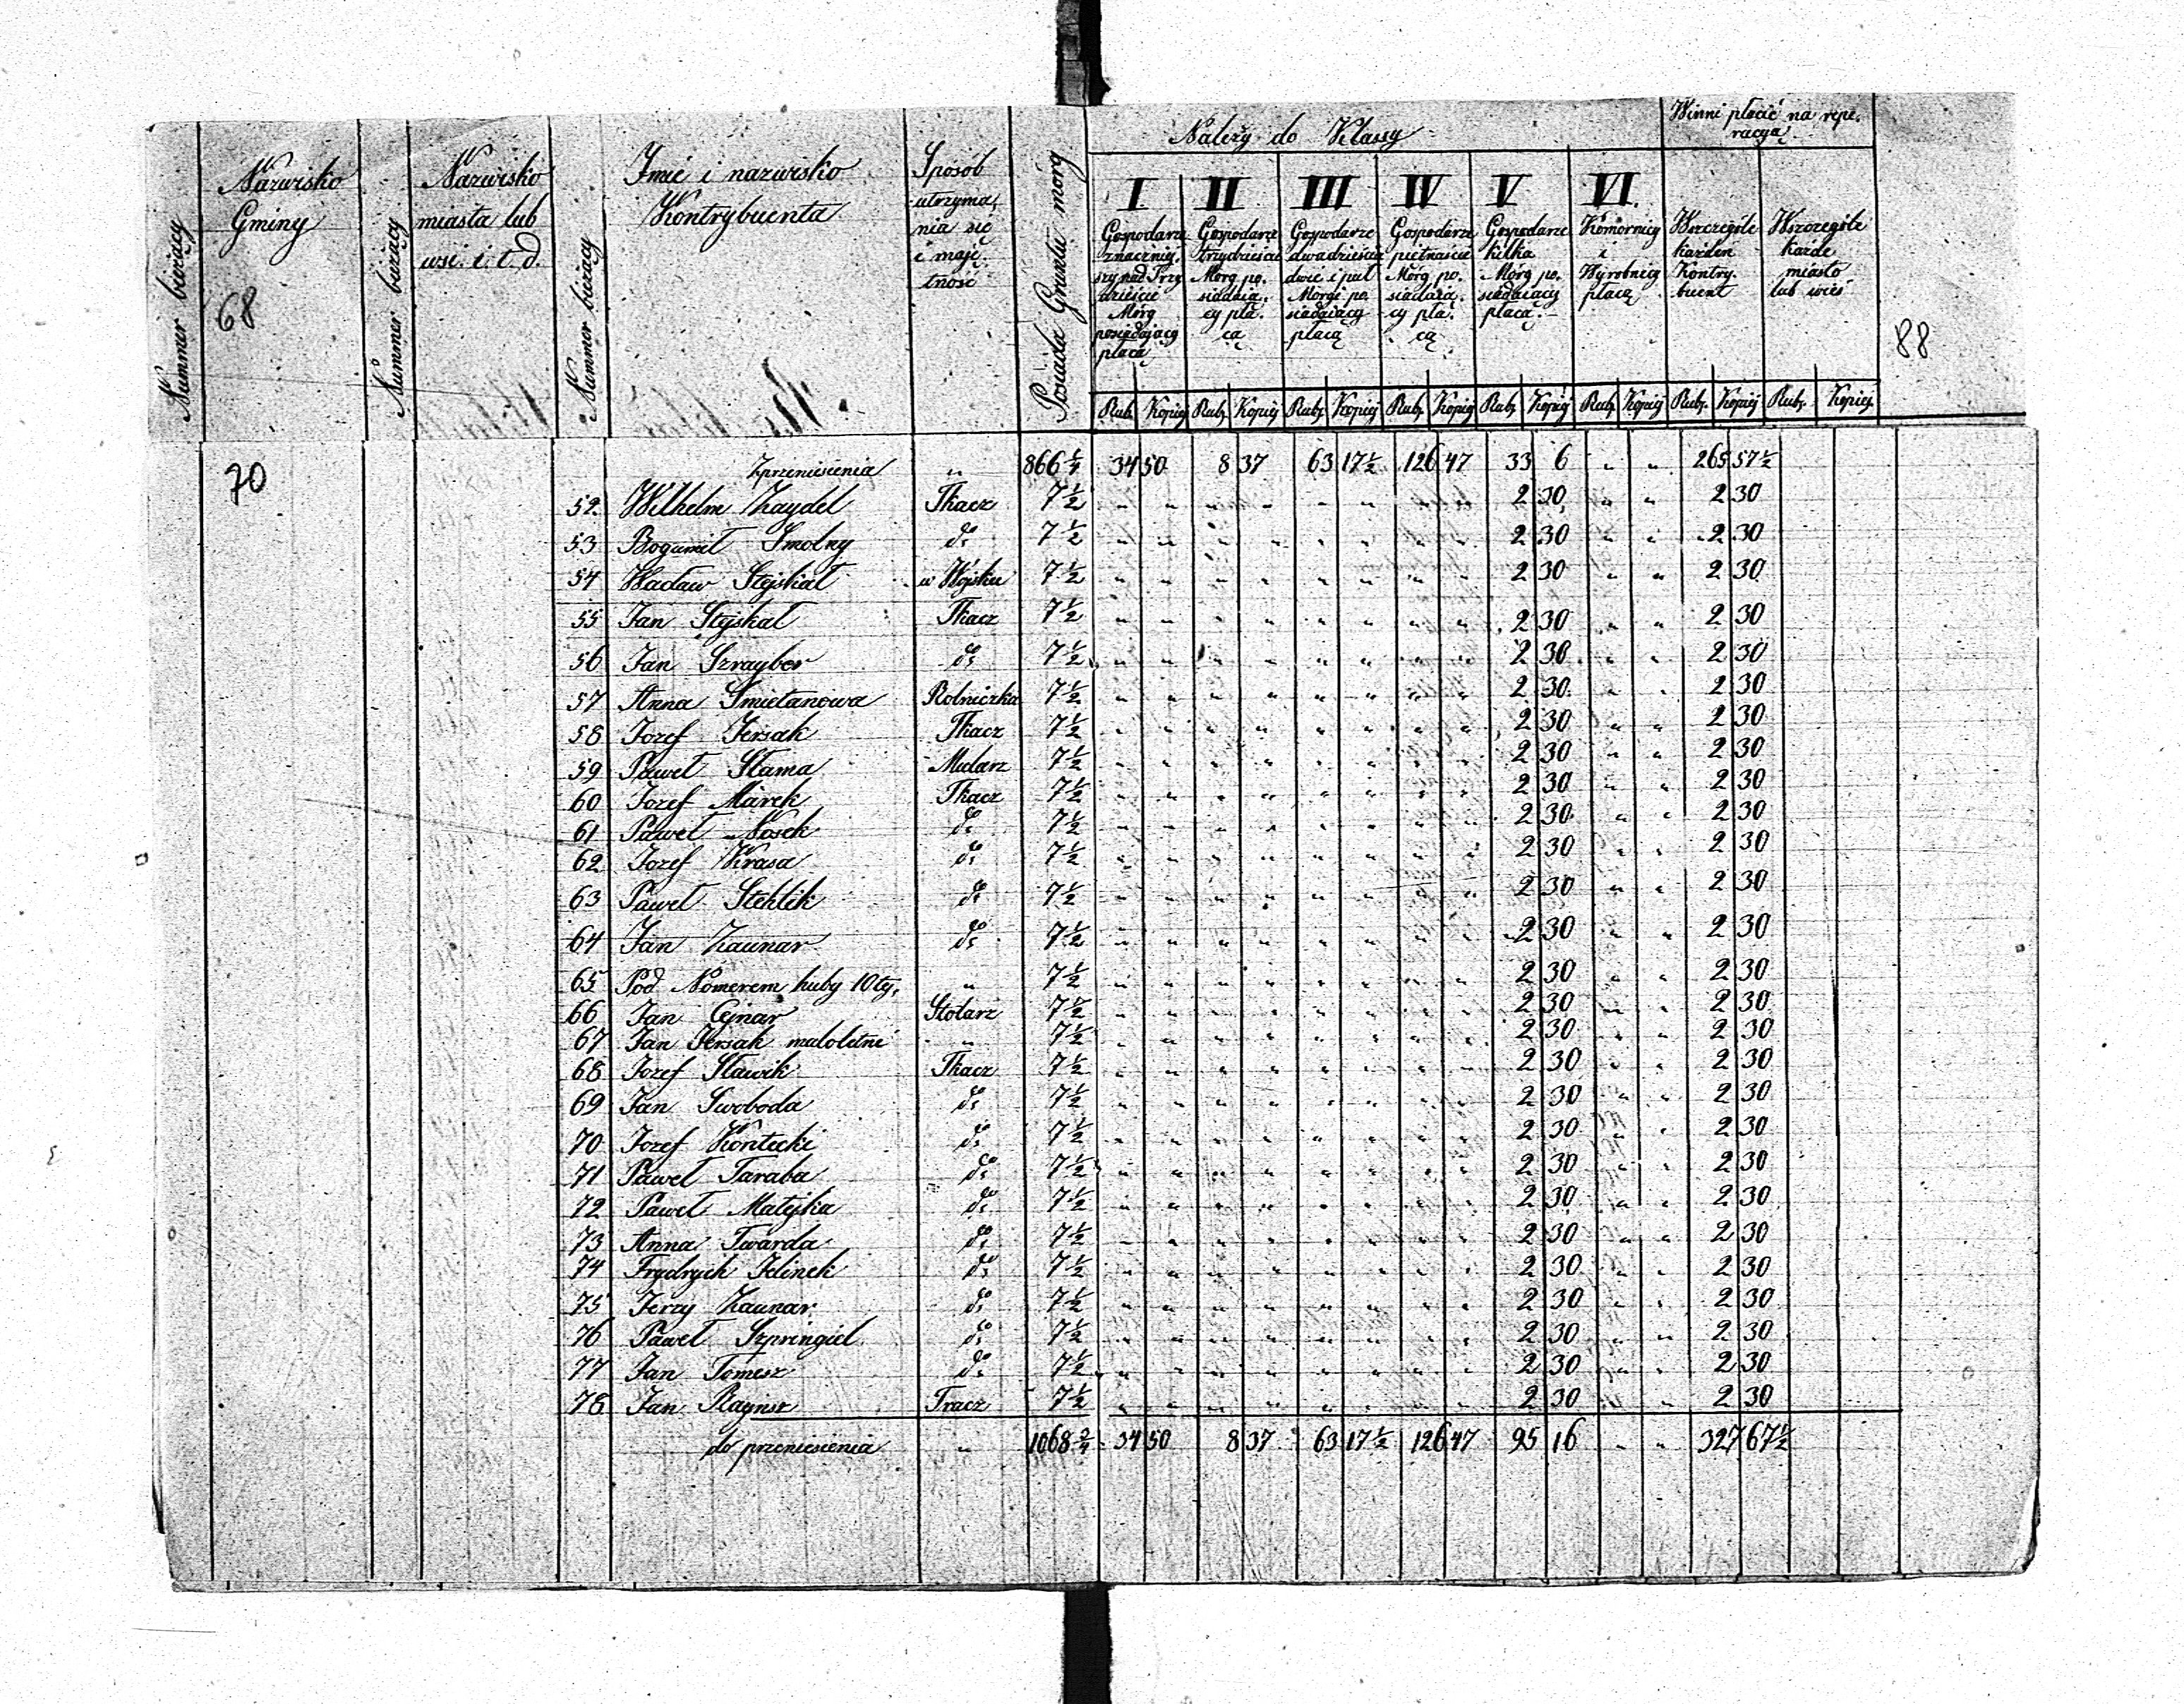 Nummer bieżący
Nazwisko Gminy
68
Nummer bieżący
Nazwisko miasta lub wsi. i. t. d.
Nummer bieżący
Imie i nazwisko Kontrybuenta
Sposób utrzymania się i majętność
Posiada Gruntu morg
Należy do Klassy
I Gospodarze znaczniejszy nad Trzydzieście Morg posiadający płacą
II Gospodarze trzydzieście Morg posiadający płacą
III Gospodarze dwadzieścia dwie i puł Morgi posiadający płacą
IV Gospodarze pietnaście Mórg posiadający płacą
V Gospodarze kilka Mórg posiadający płacą.
VI. Komornicy i Wyrobnicy płacą
Winni płacić na reperacyą.
Wszczególe każden Kontrybuent
Wszczególe każde miasto lub wieś
88
Rub. Kopiej Rub. Kopiej Rub. Kopiej Rub. Kopiej Rub. Kopiej Rub. Kopiej Rub. Kopiej Rub. Kopiej
70
Zprzeniesienia " 866 1/4 34 50 8 37 63 17 1/2 126 47 33 6 " " 265 57 1/2
52 Wilhelm Zaydel Tkacz 7 1/2 " " " " " " " " 2 30 " " 2 30
53 Bogumił Smolny do 7 1/2 " " " " " " " " 2 30 " " 2 30
54 Wacław Stejskał w Wojsku 7 1/2 " " " " " " " " 2 30 " " 2 30
55 Jan Stejskał Tkacz 7 1/2 " " " " " " " " 2 30 " " 2 30
56 Jan Szrayber do 7 1/2 " " " " " " " " 2 30 " " 2 30
57 Anna Smietanowa Rolniczka 7 1/2 " " " " " " " " 2 30 " " 2 30
58 Jozef Jersak Tkacz 7 1/2 " " " " " " " " 2 30 " " 2 30
59 Paweł Słama Mularz 7 1/2 " " " " " " " " 2 30 " " 2 30
60 Jozef Marek Tkacz 7 1/2 " " " " " " " " 2 30 " " 2 30
61 Paweł Nosek do 7 1/2 " " " " " " " " 2 30 " " 2 30
62 Jozef Krasa do 7 1/2 " " " " " " " " 2 30 " " 2 30
63 Paweł Stehlik do 7 1/2 " " " " " " " " 2 30 " " 2 30
64 Jan Zaunar do 7 1/2 " " " " " " " " 2 30 " " 2 30
65 Pod Nomerem huby 10ty, " 7 1/2 " " " " " " " " 2 30 " " 2 30
66 Jan Cejnar Stolarz 7 1/2 " " " " " " " " 2 30 " " 2 30
67 Jan Jersak małoletni " 7 1/2 " " " " " " " " 2 30 " " 2 30
68 Jozef Sławik Tkacz 7 1/2 " " " " " " " " 2 30 " " 2 30
69 Jan Swoboda do 7 1/2 " " " " " " " " 2 30 " " 2 30
70 Jozef Kontecki do 7 1/2 " " " " " " " " 2 30 " " 2 30
71 Paweł Taraba do 7 1/2 " " " " " " " " 2 30 " " 2 30
72 Paweł Matejka do 7 1/2 " " " " " " " " 2 30 " " 2 30
73 Anna Twarda do 7 1/2 " " " " " " " " 2 30 " " 2 30
74 Frydrych Jelinek do 7 1/2 " " " " " " " " 2 30 " " 2 30
75 Jerzy Zaunar do 7 1/2 " " " " " " " " 2 30 " " 2 30
76 Paweł Szpringiel do 7 1/2 " " " " " " " " 2 30 " " 2 30
77 Jan Tomesz do 7 1/2 " " " " " " " " 2 30 " " 2 30
78 Jan Raynsz Tracz 7 1/2 " " " " " " " " 2 30 " " 2 30
do przeniesienia " 1068 3/4 34 50 8 37 63 17 1/2 126 47 95 16 " " 327 67 1/2